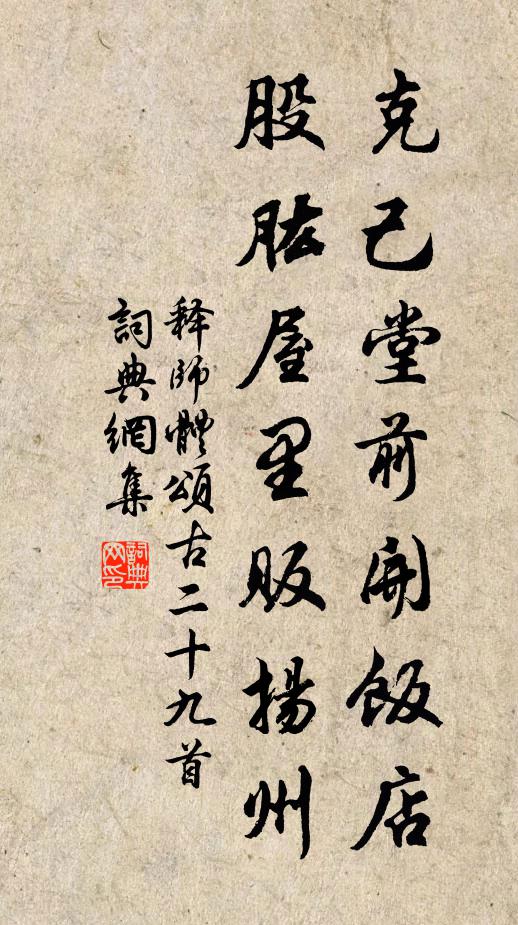 克己堂前開飯店
股肱屋里販揚州
释師體頌古二十九首
詞典網集
詞典網印